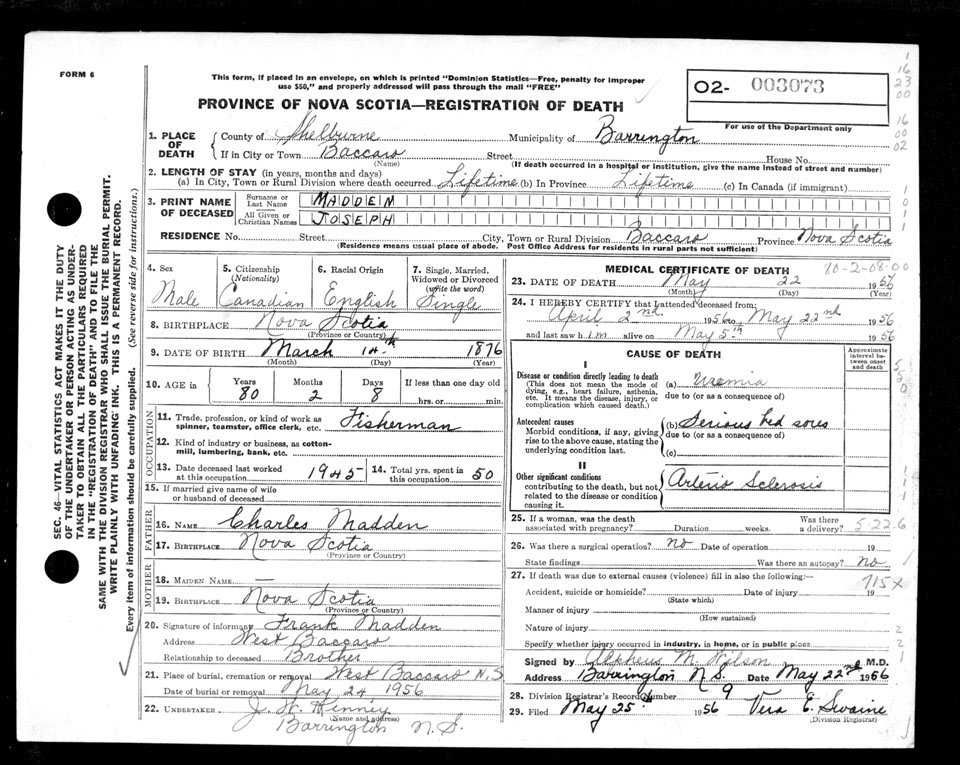 FORM 6
This form, if placed in an envelope, on which is printed "Dominion Statistics—Free, penalty for improper
use $50," and properly addressed will pass through the mail "FREE"
PROVINCE OF NOVA SCOTIA—REGISTRATION OF DEATH
02- 003073
For use of the Department only
1. PLACE OF DEATH
County of Shelburne Municipality of Barrington
If in City or Town Baccaro Street House No.
(Name) (If death occurred in a hospital or institution, give the name instead of street and number)
2. LENGTH OF STAY (in years, months and days)
(a) In City, Town or Rural Division where death occurred Lifetime (b) In Province Lifetime (c) In Canada (if immigrant)
3. PRINT NAME OF DECEASED
Surname or Last Name MADDEN
All Given or Christian Names JOSEPH
RESIDENCE No. Street City, Town or Rural Division Baccaro Province Nova Scotia
(Residence means usual place of abode. Post Office Address for residents in rural parts not sufficient)
4. Sex Male
5. Citizenship (Nationality) Canadian
6. Racial Origin English
7. Single, Married, Widowed or Divorced (write the word) Single
8. BIRTHPLACE Nova Scotia
(Province or Country)
9. DATE OF BIRTH March 14th 1876
(Month) (Day) (Year)
10. AGE in Years 80 Months 2 Days 8 If less than one day old hrs. or min.
OCCUPATION
11. Trade, profession, or kind of work as
spinner, teamster, office clerk, etc. Fisherman
12. Kind of industry or business, as cotton-
mill, lumbering, bank, etc.
13. Date deceased last worked
at this occupation 1945
14. Total yrs. spent in
this occupation 50
15. If married give name of wife
or husband of deceased
FATHER
16. NAME Charles Madden
17. BIRTHPLACE Nova Scotia
(Province or Country)
MOTHER
18. MAIDEN NAME —
19. BIRTHPLACE Nova Scotia
(Province or Country)
20. Signature of informant Frank Madden
Address West Baccaro
Relationship to deceased Brother
21. Place of burial, cremation or removal West Baccaro N.S
Date of burial or removal May 24 1956
22. UNDERTAKER J. H. Kenney
(Name and address)
Barrington N.S.
MEDICAL CERTIFICATE OF DEATH
80-2-08-00
23. DATE OF DEATH May 22 1956
(Month) (Day) (Year)
24. I HEREBY CERTIFY that I attended deceased from:
April 2nd 1956 to May 22nd 1956
and last saw him alive on May 5th 1956
CAUSE OF DEATH
Approximate interval between onset and death
I
Disease or condition directly leading to death
(This does not mean the mode of
dying, e.g., heart failure, asthenia,
etc. It means the disease, injury, or
complication which caused death.)
(a) Uremia
due to (or as a consequence of)
Antecedent causes
Morbid conditions, if any, giving
rise to the above cause, stating the
underlying condition last.
(b) Serious bed sores
due to (or as a consequence of)
(c)
II
Other significant conditions
contributing to the death, but not
related to the disease or condition
causing it.
Arterio Sclerosis
25. If a woman, was the death
associated with pregnancy? Duration weeks. Was there
a delivery?
5-22.6
26. Was there a surgical operation? no Date of operation 19
State findings Was there an autopsy? no
27. If death was due to external causes (violence) fill in also the following:—
715X
Accident, suicide or homicide? Date of injury 19
(State which)
Manner of injury
(How sustained)
Nature of injury
Specify whether injury occurred in industry, in home, or in public place
Signed by Alpheus M. Wilson M.D.
Address Barrington N.S. Date May 22nd 1956
28. Division Registrar's Record Number 9
29. Filed May 25th 1956 Vera E. Swaine
(Division Registrar)
SEC. 46—VITAL STATISTICS ACT MAKES IT THE DUTY
OF THE UNDERTAKER OR PERSON ACTING AS UNDER-
TAKER TO OBTAIN ALL THE PARTICULARS REQUIRED
IN THE "REGISTRATION OF DEATH" AND TO FILE THE
SAME WITH THE DIVISION REGISTRAR WHO SHALL ISSUE THE BURIAL PERMIT.
WRITE PLAINLY WITH UNFADING INK. THIS IS A PERMANENT RECORD.
Every item of information should be carefully supplied. (See reverse side for instructions.)